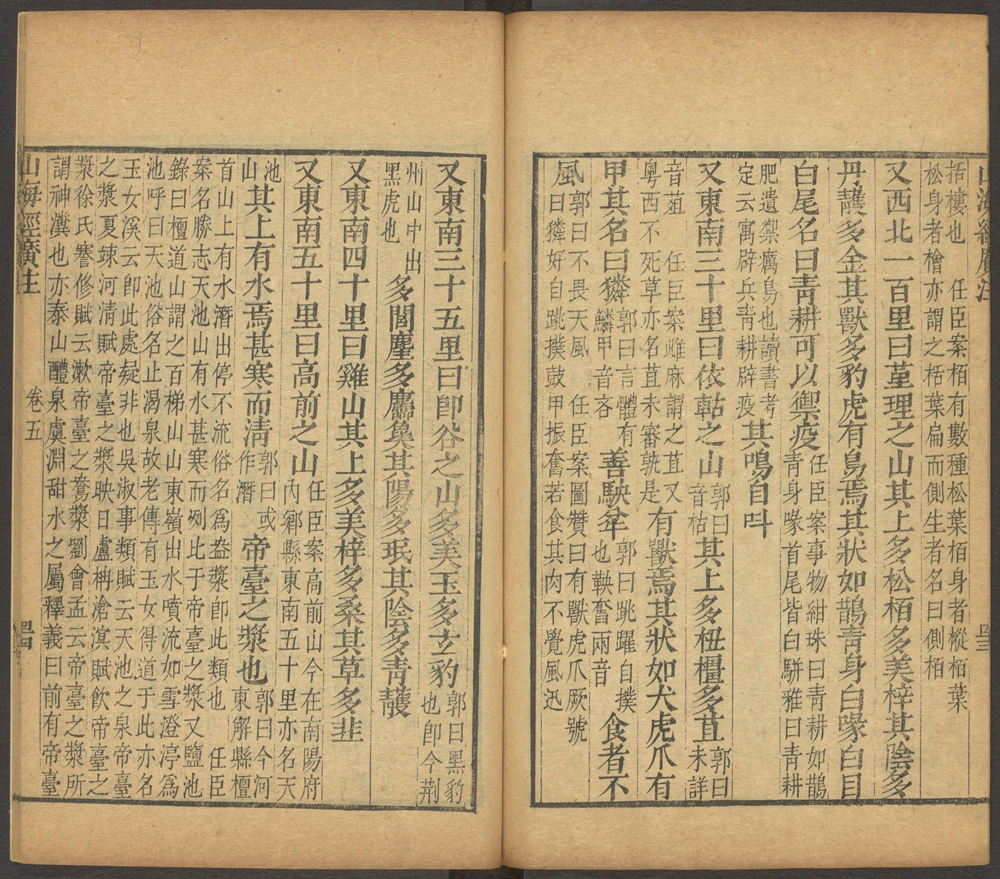 山海經廣注
四三
括樓也　任臣案栢有數種松葉栢身者樅栢葉
松身者檜亦謂之栝葉扁而側生者名曰側栢
又西北一百里曰堇理之山其上多松栢多美梓其陰多
丹雘多金其獸多豹虎有鳥焉其狀如鵲青身白喙白目
白尾名曰青耕可以禦疫任臣案事物紺珠曰青耕如鵲青身喙首尾皆白駢雅曰青耕
肥遺禦癘鳥也讀書考定云寓辟兵青耕辟疫其鳴自叫
又東南三十里曰依軲之山郭曰音枯其上多杻橿多苴郭曰未詳
音葅　任臣案雌麻謂之苴又粵西不死草亦名苴未審孰是有獸焉其狀如犬虎爪有
甲其名曰獜郭曰言體有鱗甲音吝善駚𤘩郭曰跳躍自撲也鞅奮兩音食者不
風郭曰不畏天風　任臣案圖贊曰有獸虎爪厥號曰獜好自跳撲鼓甲振奮若食其肉不覺風迅
又東南三十五里曰卽谷之山多美玉多玄豹郭曰黑豹也卽今荆
州山中出黑虎也多閭麈多麢㚟其陽多珉其陰多青雘
又東南四十里曰雞山其上多美梓多桑其草多韭
又東南五十里曰高前之山任臣案高前山今在南陽府內鄉縣東南五十里亦名天
池山其上有水焉甚寒而清郭曰或作潛帝臺之漿也郭曰今河東解縣檀
首山上有水潛出停不流俗名爲盎漿卽此類也　任臣
案名勝志天池山有水甚寒而冽比于帝臺之漿又鹽池
錄曰檀道山謂之百梯山山東嶺出水噴流如雪澄渟爲
池呼曰天池俗名止渴泉故老傳有玉女得道于此亦名
玉女溪云卽此處疑非也吳淑事類賦云天池之泉帝臺
之漿夏竦河清賦帝臺之漿映日盧柟滄溟賦飲帝臺之
漿徐氏蹇修賦云漱帝臺之鴦漿劉會孟云帝臺之漿所
謂神瀵也亦泰山醴泉虞淵甜水之屬釋義曰前有帝臺
山海經廣注
卷五
四四